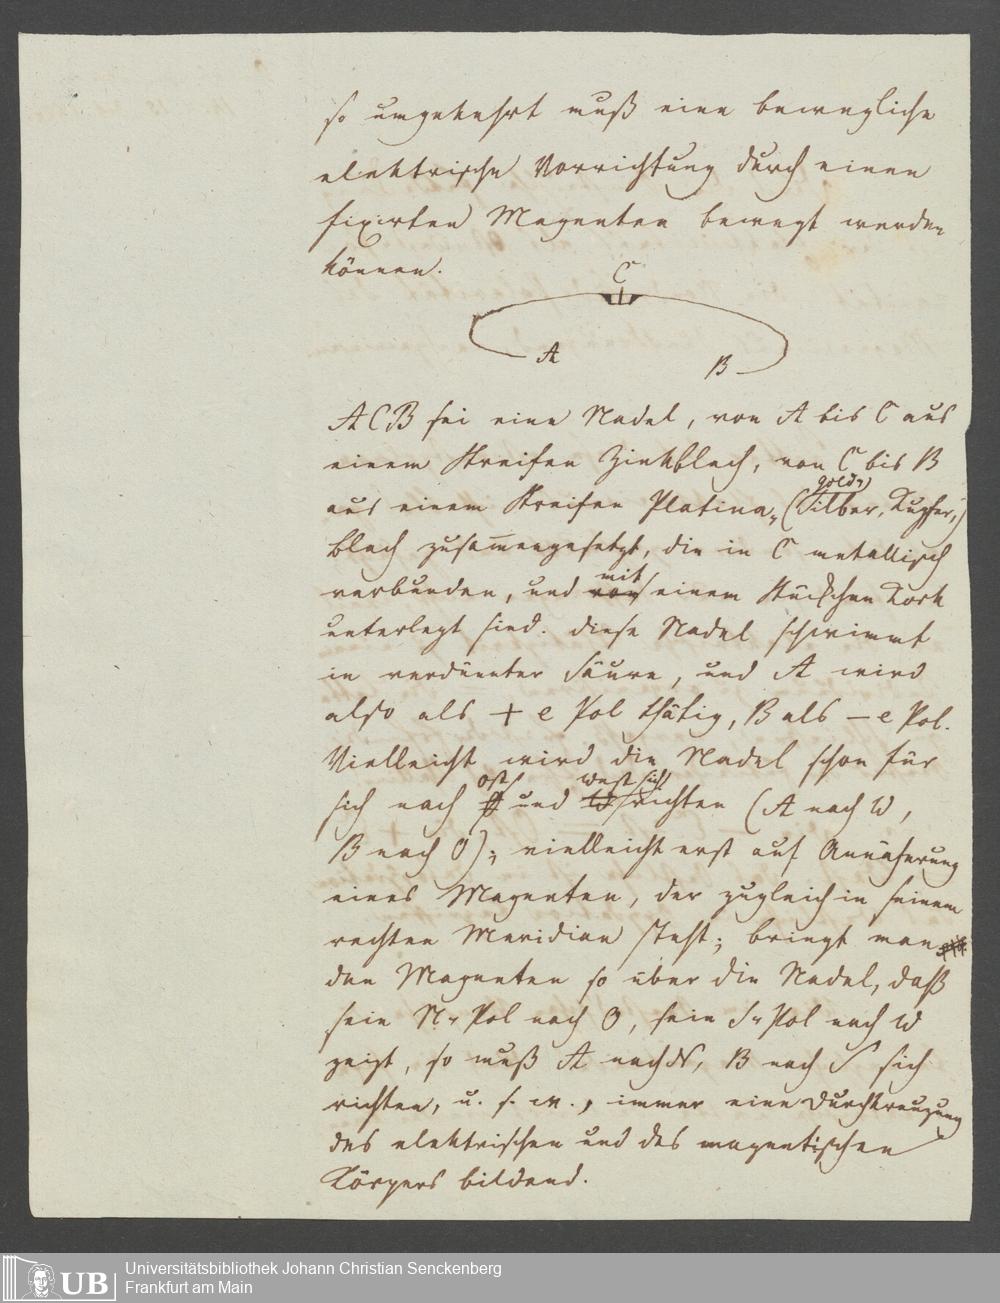 so umgekehrt muß eine bewegliche
elektrische Vorrichtung durch einen
fixirten Magneten bewegt werden
können.
C
A
B
ACB sei eine Nadel, von A bis C aus
einem Streifen Zinkblech, von C bis B
gold,
aus einem Streifen Platina, (Silber, Kupfer,)
blech zusammengesetzt, die in C metallisch
mit
verbunden, und von einem Stückchen Kork
unterlegt sind. diese Nadel schwimmt
in verdünnter Säure, und A wird
also als + e Pol thätig, B als – e Pol.
Vielleicht wird die Nadel schon für
ost west sich
sich nach und W richten (A nach W,
B nach O); vielleicht erst auf Annäherung
eines Magneten, der zugleich in seinem
rechten Meridian steht; bringt man
den Magneten so über die Nadel, daß
sein N- Pol nach O, sein S- Pol nach W
zeigt, so muß A nach N, B nach S sich
richten, u. s. w., immer eine Durchkreuzung
des elektrischen und des magnetischen
Körpers bildend.
UB
Universitätsbibliothek Johann Christian Senckenberg
Frankfurt am Main